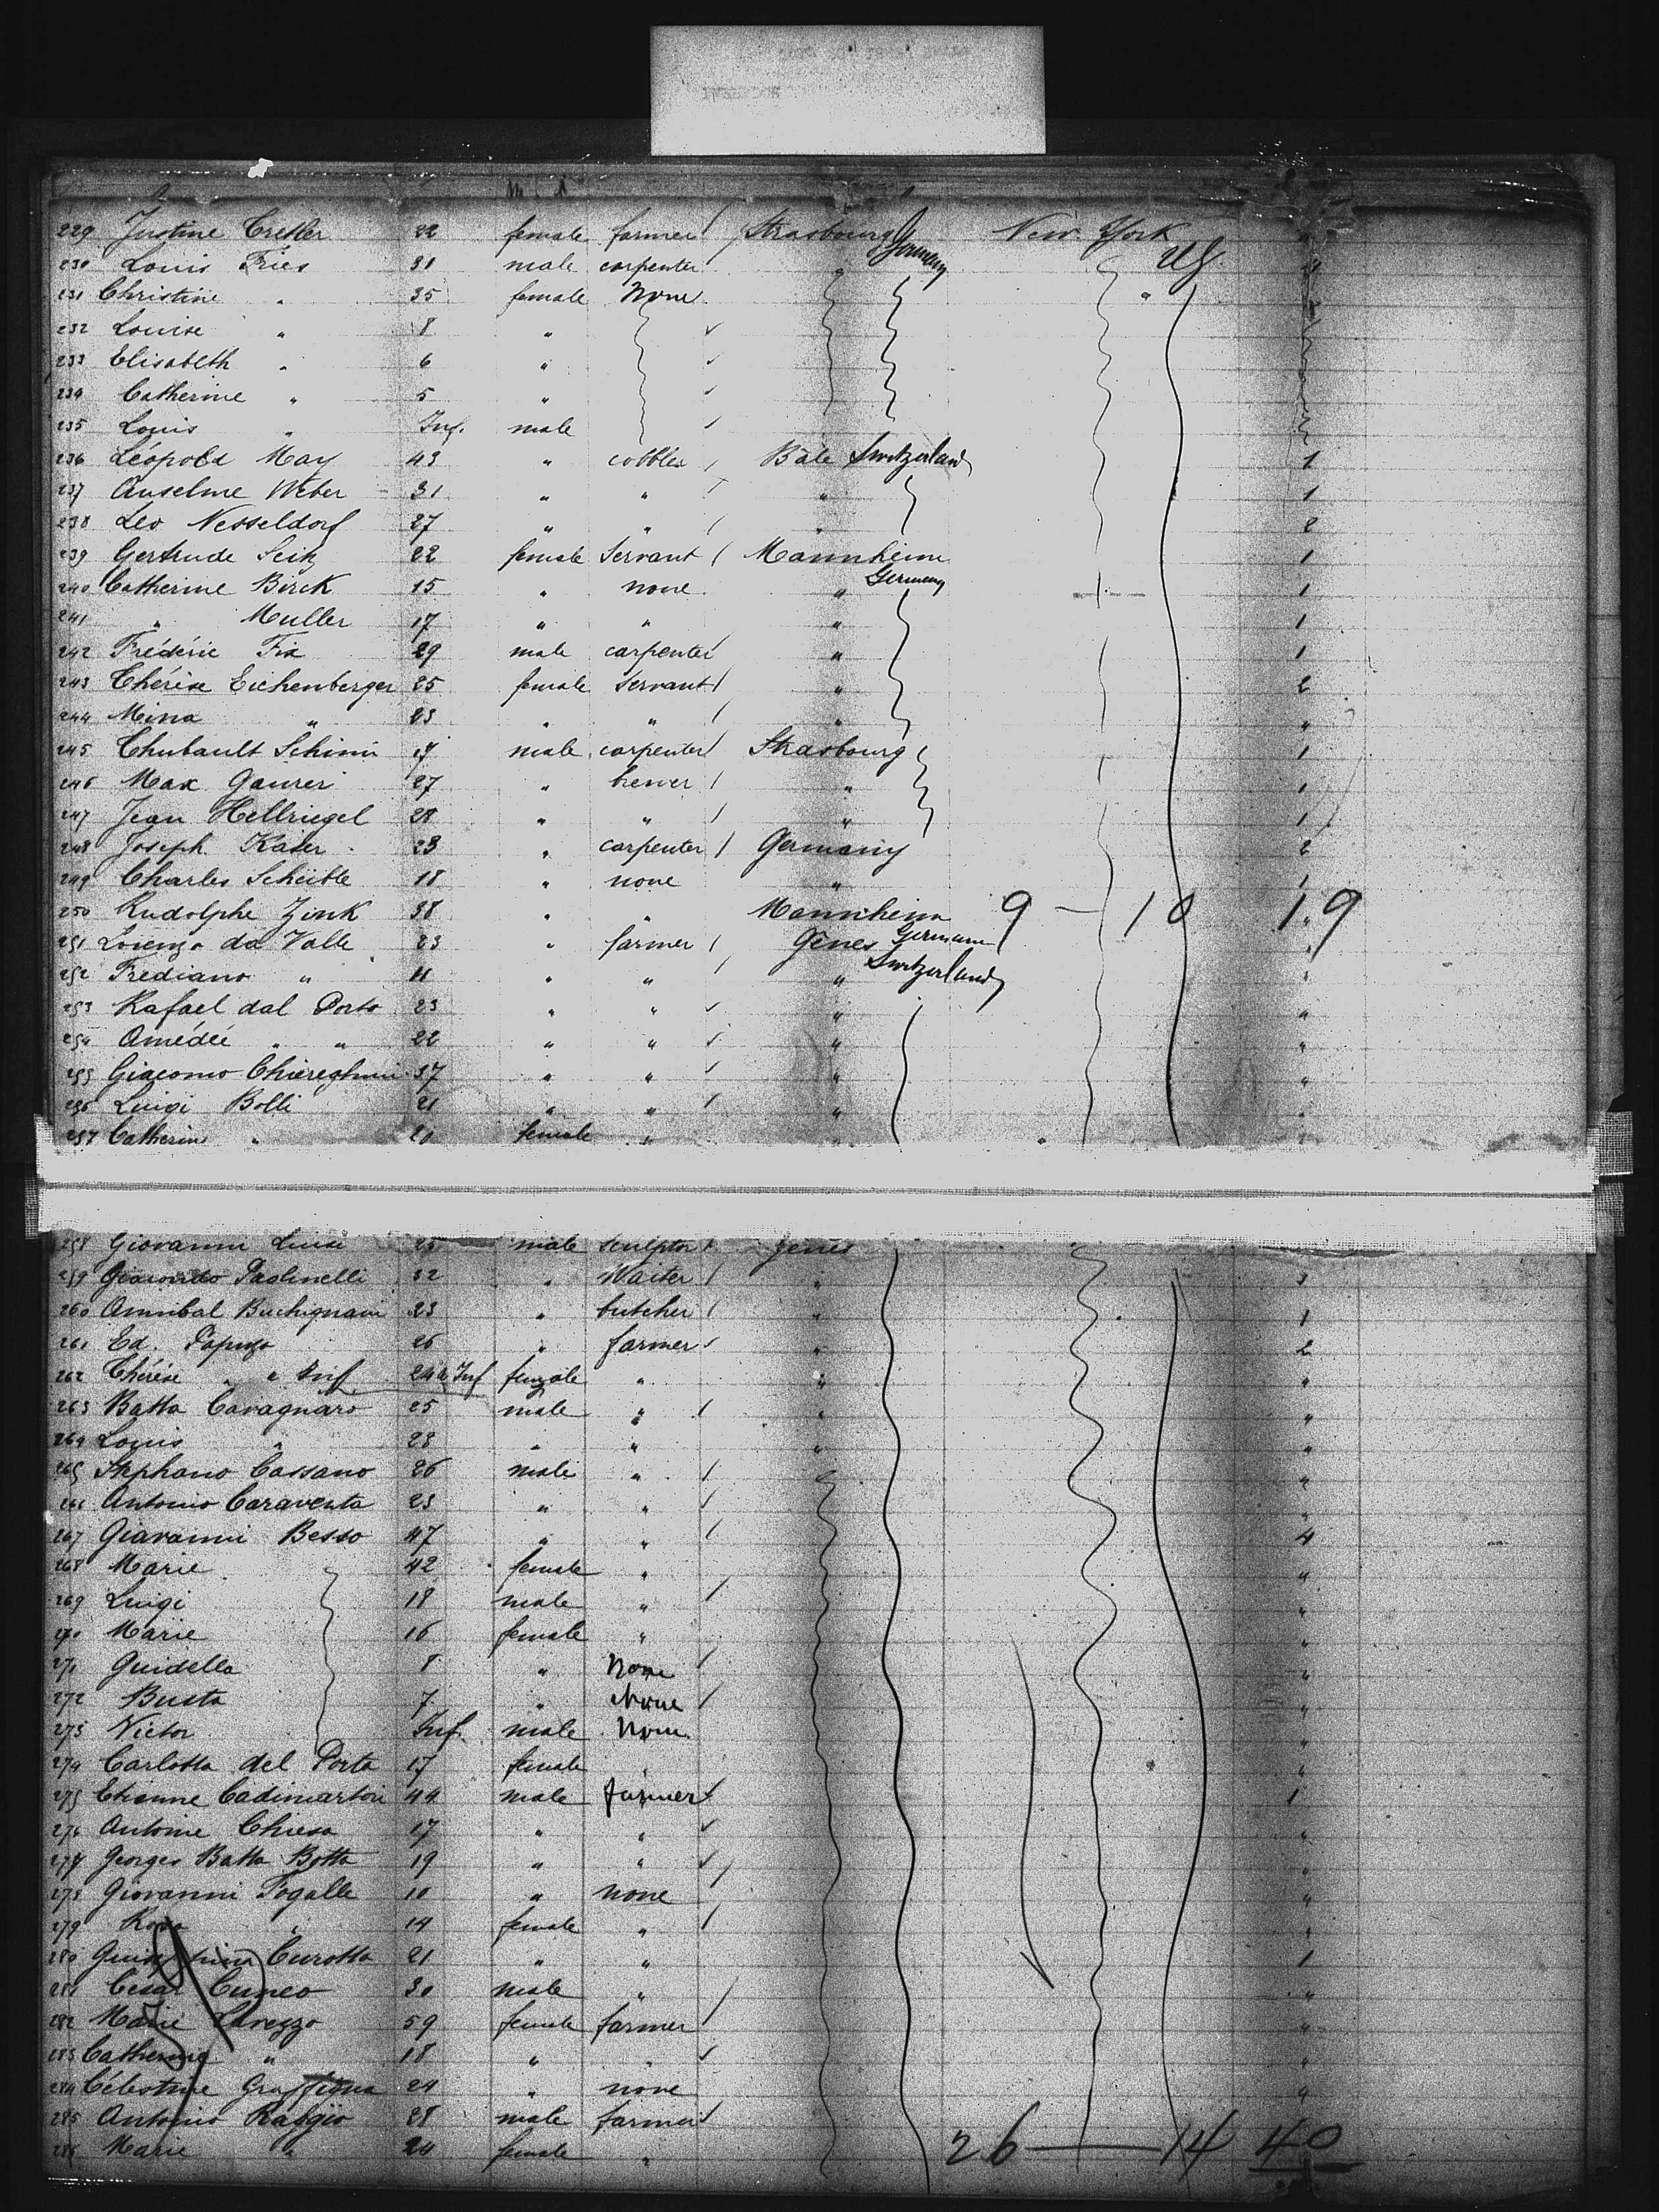 229 Justine Cretler 22 female farmer Strasbourg Germany New York US "
230 Louis Fries 31 male carpenter " 4
231 Christine " 35 female None "
232 Louise " 8 "
233 Elisabeth " 6 "
234 Catherine " 5 "
235 Louis " Inf. male
236 Léopold May 43 " cobbler Bâle Switzerland 1
237 Anselme Weber 31 " " " 1
238 Leo Nesseldorf 27 " " " 2
239 Gertrude Seitz 22 female Servant Mannheim 1
240 Catherine Birck 15 " none " Germany 1
241 " Muller 17 " " " 1
242 Frédéric Fix 29 male carpenter " 1
243 Thérèse Eichenberger 25 female Servant " 2
244 Mina " 23 " " " "
245 Thubault Schimi 17 male carpenter Strasbourg 1
246 Max Gaurer 27 " brewer " 1
247 Jean Hellriegel 28 " " " 1
248 Joseph Kaiser 23 " carpenter Germany 2
249 Charles Scheible 18 " none " 1
250 Rudolphe Zink 38 " " Mannheim Germany 9 — 10 19
251 Lorenzo da Valle 23 " farmer Gênes Switzerland "
252 Frediano " 11 " " " "
253 Rafael dal Porto 23 " " " "
254 Amédée " " 22 " " " "
255 Giacomo Chiereghini 37 " " " "
256 Luigi Bolli 21 " " " "
257 Catherine " 20 female "
258 Giovanni male sculptor Genes
259 Paolinelli 32 " Waiter " 3
260 Annibal Buchignani 23 " butcher " 1
261 Ed. 26 " farmer " 2
262 Thérèse " & Inf 24 & Inf female " " "
263 Batta Cavagnaro 25 male " " "
264 Louis " 23 " " " "
265 Stephano Cassano 26 male " "
266 Antonio Caraventa 23 " " "
267 Giavanni Besso 47 " " 4
268 Marie 42 female " "
269 Luigi 18 male " "
270 Marie 16 female " "
271 Guidella 8 " None "
272 Busta 7 " None "
273 Victor Inf. male None "
274 Carlotta del Porta 17 female "
275 Etienne Cadimartori 44 male farmer 1
276 Antoine Chiesa 17 " " "
277 Georges Batta Botta 19 " " "
278 Giovanni Fogalle 10 " none "
279 Rosa " 14 female " "
280 Curotto 21 " " 1
281 César Cuneo 30 male " "
282 Marie 59 female farmer "
283 Catherine " 18 " " "
284 Célestine Graffigna 24 " none "
285 Antonio Raggio 28 male farmer
286 Marie " 24 female " 26 — 14 40